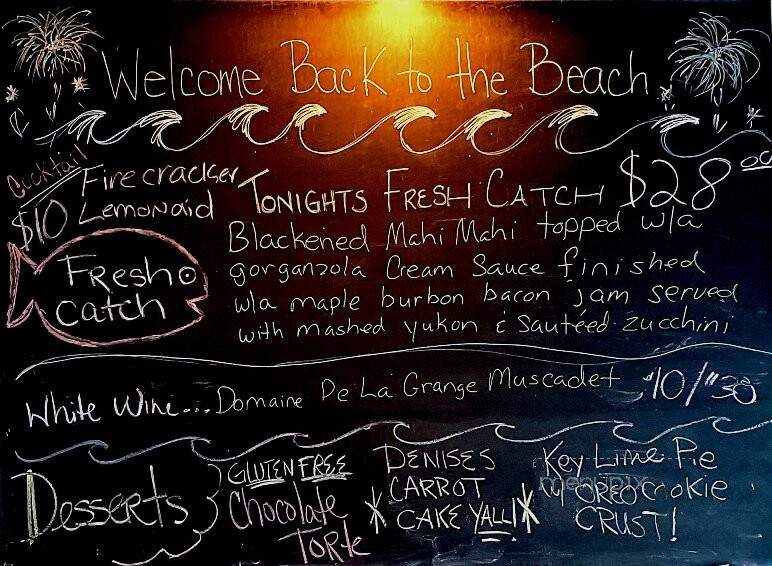 Welcome Back to the Beach
Cocktail
Firecracker
$10 Lemonaid
Fresh
catch
TONIGHTS FRESH CATCH $28 00
Blackened Mahi Mahi topped w/a
gorganzola Cream Sauce finished
w/a maple burbon bacon jam served
with mashed yukon & Sautéed zucchini
White Wine... Domaine De La Grange Muscadet $10/$38
Desserts
GLUTEN FREE
Chocolate
Torte
DENISES
CARROT
CAKE YALL!
Key Lime Pie
w/ OREO cookie
CRUST!
menupix